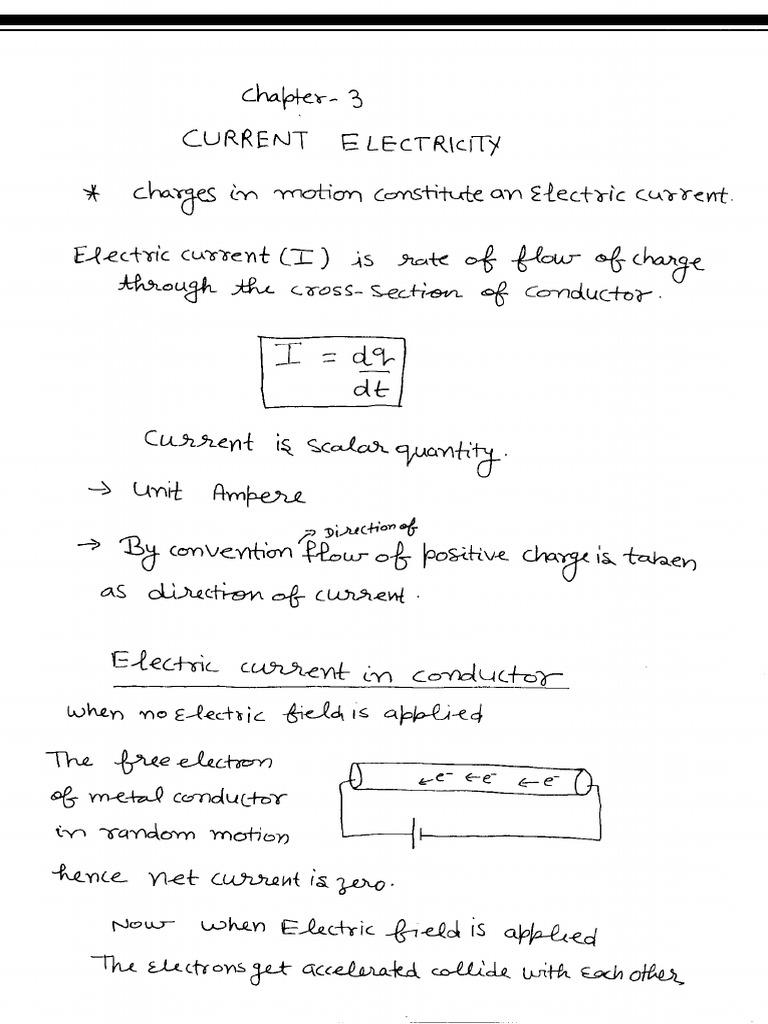 Chapter - 3
CURRENT ELECTRICITY
* Charges in motion constitute an Electric current.
Electric current (I) is rate of flow of charge
through the cross-section of conductor.
I = dq/dt
Current is scalar quantity.
→ Unit Ampere
→ By convention Direction of flow of positive charge is taken
as direction of current.
Electric current in conductor
When no Electric field is applied
The free electron
of metal conductor
in random motion
← e⁻ ← e⁻ ← e⁻
hence net current is zero.
Now when Electric field is applied
The Electrons get accelerated collide with each other